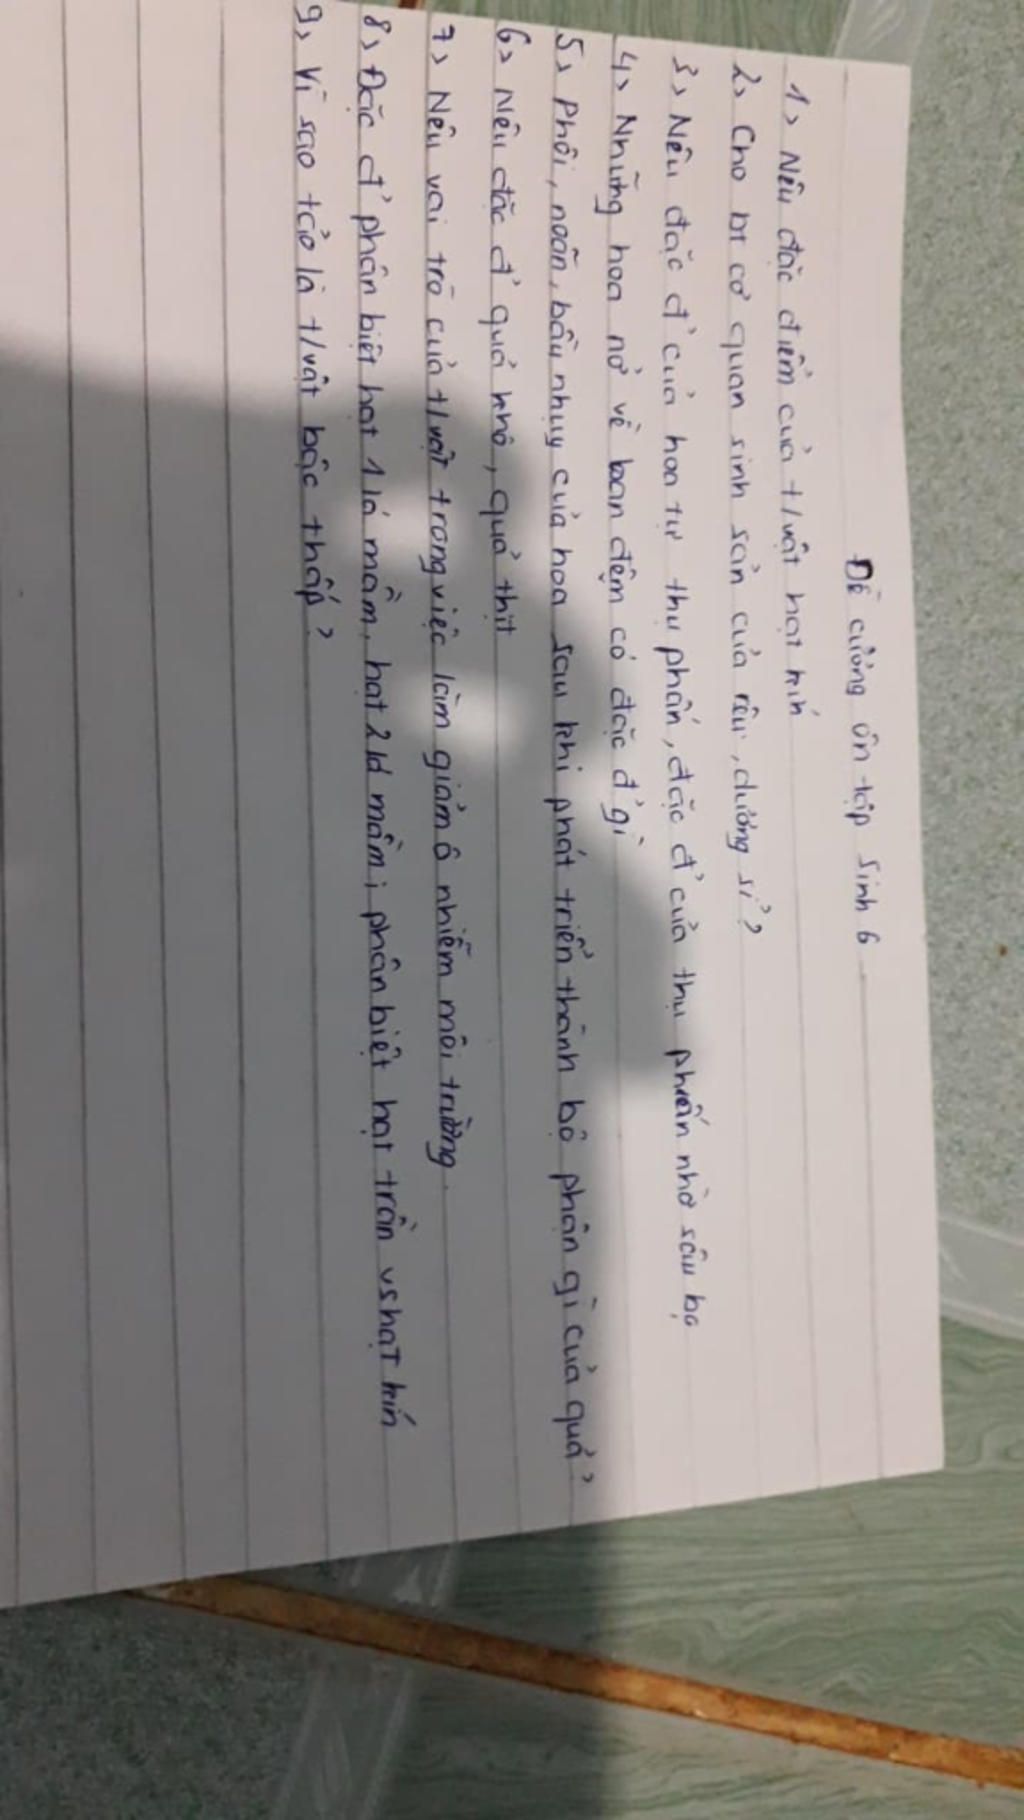 Đề cương ôn tập sinh 6
1, Nêu đặc điểm của t/vật hạt kín
2, Cho bt cơ quan sinh sản của rêu, dương sỉ?
3, Nêu đặc đ' của hoa tự thụ phấn, đặc đ' của thụ phấn nhờ sâu bọ
4, Những hoa nở về ban đêm có đặc đ' gì
5, Phôi, noãn, bầu nhụy của hoa sau khi phát triển thành bộ phận gì của quả?
6, Nêu đặc đ' quả khô, quả thịt
7, Nêu vai trò của t/vật trong việc làm giảm ô nhiễm môi trường.
8, Đặc đ' phân biệt hạt 1 lá mầm, hạt 2 lá mầm; phân biệt hạt trần vs hạt kín
9, Vì sao tảo là t/vật bậc thấp?